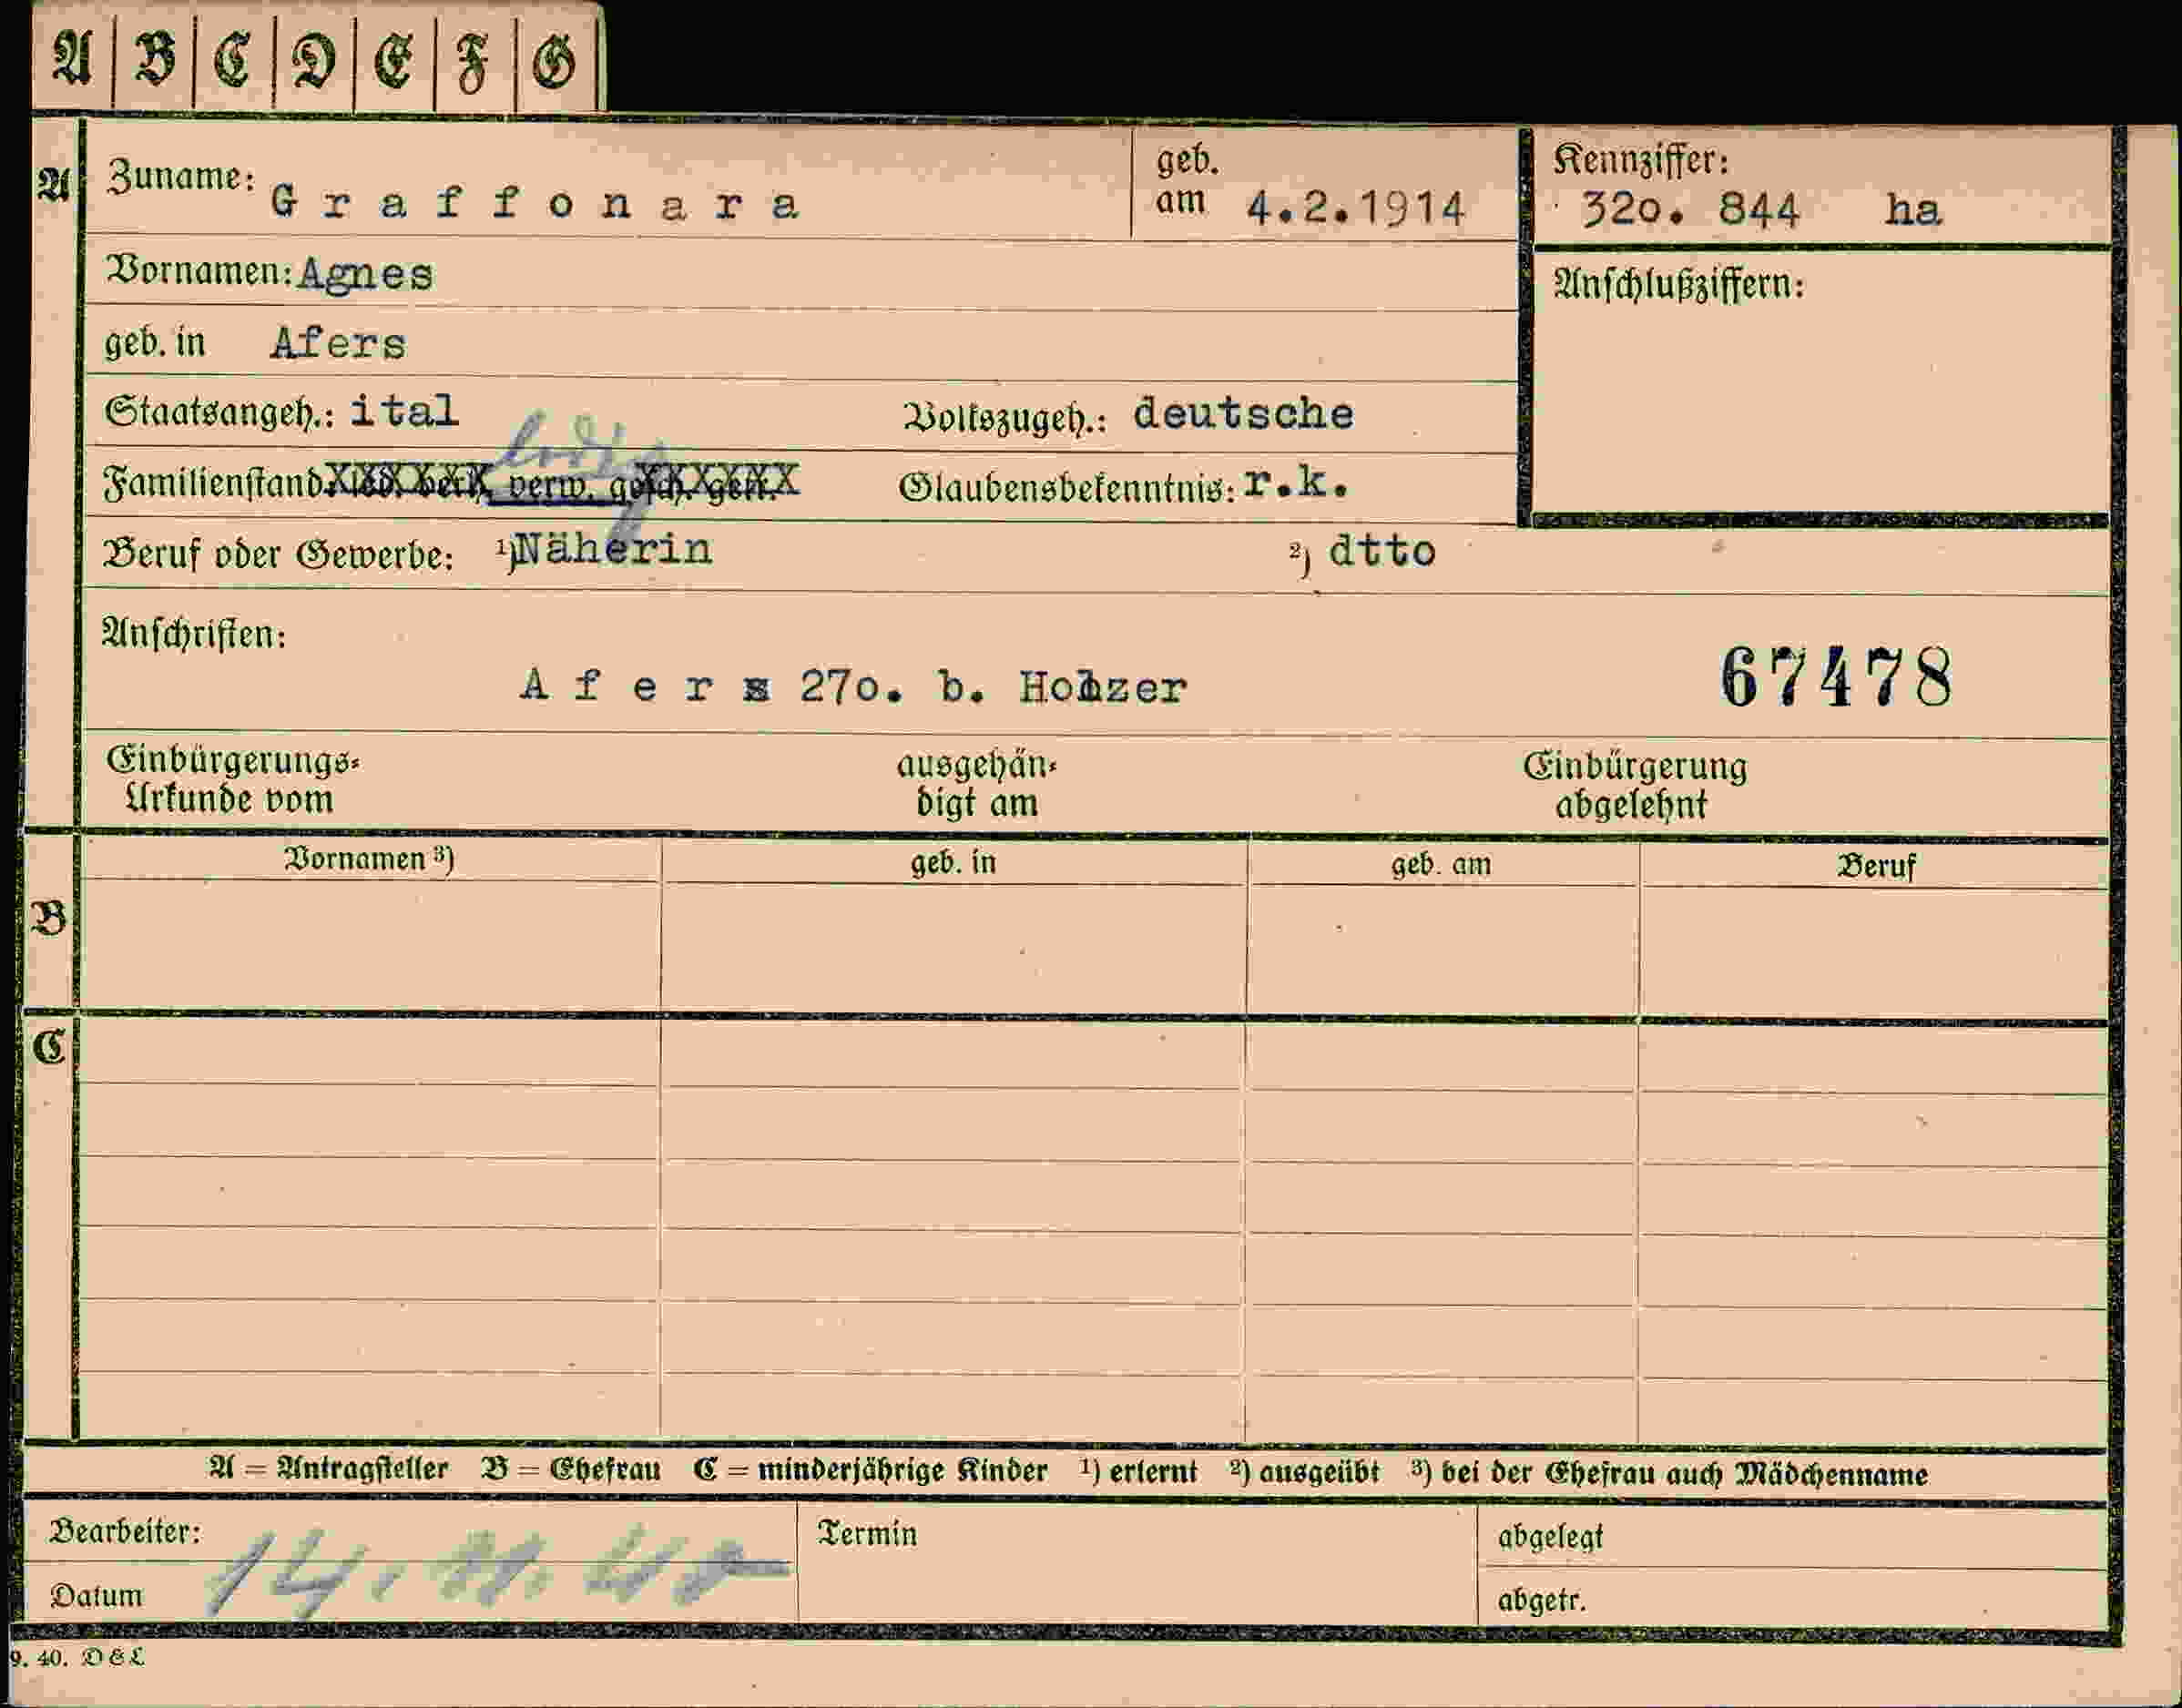 A B C D E F G
A
Zuname: Graffonara
geb. am 4.2.1914
Kennziffer: 320. 844 ha
Vornamen: Agnes
Anschlußziffern:
geb. in Afers
Staatsangeh.: ital Volkszugeh.: deutsche
ledig
Familienstand: led. verh. verw. gesch. getr. Glaubensbekenntnis: r.k.
Beruf oder Gewerbe: ¹) Näherin ²) dtto
Anschriften:
Afers 270. b. Holzer 67478
Einbürgerungs- Urkunde vom
ausgehändigt am
Einbürgerung abgelehnt
Vornamen ³) geb. in geb. am Beruf
B
C
A = Antragsteller B = Ehefrau C = minderjährige Kinder ¹) erlernt ²) ausgeübt ³) bei der Ehefrau auch Mädchenname
Bearbeiter: Termin abgelegt
Datum 14. 40 abgetr.
9. 40. D&L